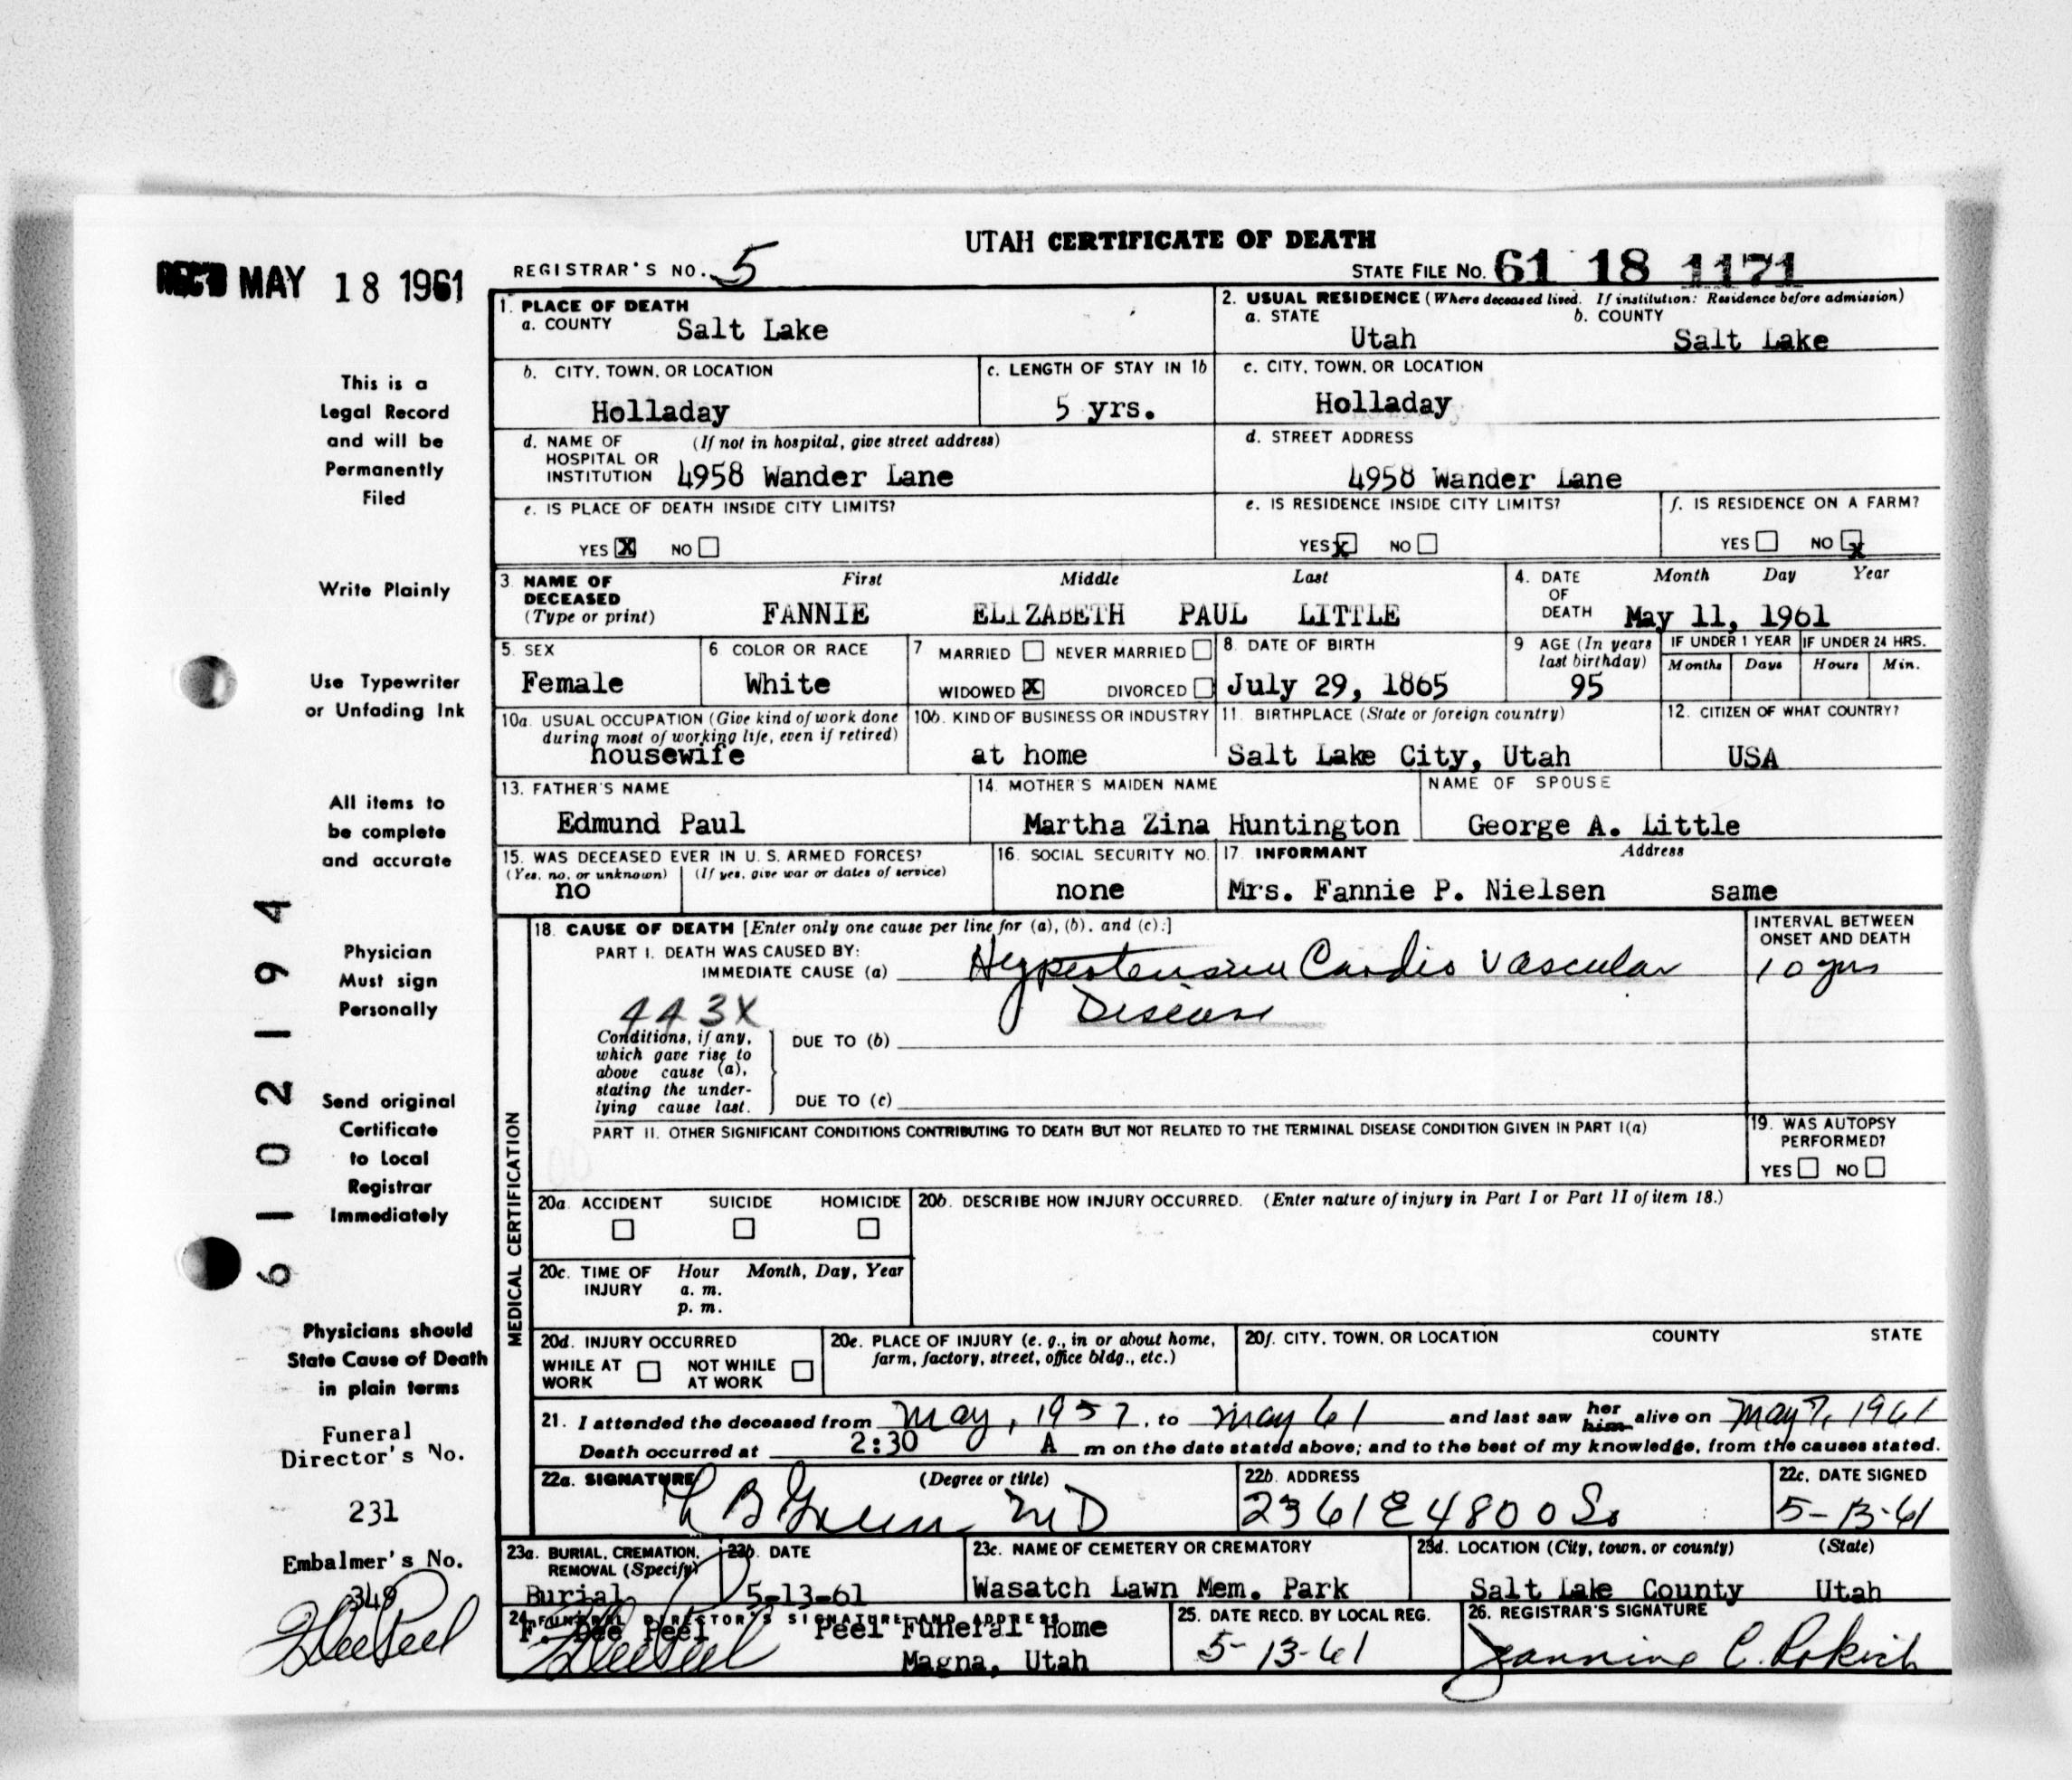 UTAH CERTIFICATE OF DEATH
REC'D MAY 18 1961
REGISTRAR'S NO. 5
STATE FILE NO. 61 18 1171
This is a
Legal Record
and will be
Permanently
Filed
Write Plainly
Use Typewriter
or Unfading Ink
All items to
be complete
and accurate
Physician
Must sign
Personally
Send original
Certificate
to Local
Registrar
Immediately
Physicians should
State Cause of Death
in plain terms
Funeral
Director's No.
231
Embalmer's No.
348
6102194
1. PLACE OF DEATH
a. COUNTY Salt Lake
2. USUAL RESIDENCE (Where deceased lived. If institution: Residence before admission)
a. STATE Utah b. COUNTY Salt Lake
b. CITY, TOWN, OR LOCATION Holladay
c. LENGTH OF STAY IN 1b 5 yrs.
c. CITY, TOWN, OR LOCATION Holladay
d. NAME OF HOSPITAL OR INSTITUTION (If not in hospital, give street address) 4958 Wander Lane
d. STREET ADDRESS 4958 Wander Lane
e. IS PLACE OF DEATH INSIDE CITY LIMITS?
YES X NO
e. IS RESIDENCE INSIDE CITY LIMITS?
YES X NO
f. IS RESIDENCE ON A FARM?
YES NO X
3. NAME OF DECEASED (Type or print) First Middle Last
FANNIE ELIZABETH PAUL LITTLE
4. DATE OF DEATH Month Day Year
May 11, 1961
5. SEX Female
6 COLOR OR RACE White
7 MARRIED NEVER MARRIED
WIDOWED X DIVORCED
8. DATE OF BIRTH July 29, 1865
9 AGE (In years last birthday) 95
IF UNDER 1 YEAR Months Days
IF UNDER 24 HRS. Hours Min.
10a. USUAL OCCUPATION (Give kind of work done during most of working life, even if retired) housewife
10b. KIND OF BUSINESS OR INDUSTRY at home
11. BIRTHPLACE (State or foreign country) Salt Lake City, Utah
12. CITIZEN OF WHAT COUNTRY? USA
13. FATHER'S NAME Edmund Paul
14. MOTHER'S MAIDEN NAME Martha Zina Huntington
NAME OF SPOUSE George A. Little
15. WAS DECEASED EVER IN U. S. ARMED FORCES?
(Yes, no, or unknown) (If yes, give war or dates of service)
no
16. SOCIAL SECURITY NO. none
17. INFORMANT Address
Mrs. Fannie P. Nielsen same
MEDICAL CERTIFICATION
18. CAUSE OF DEATH [Enter only one cause per line for (a), (b), and (c).]
PART I. DEATH WAS CAUSED BY:
IMMEDIATE CAUSE (a) Hypertensive Cardio Vascular
Disease
INTERVAL BETWEEN ONSET AND DEATH
10 yrs
443X
Conditions, if any, which gave rise to above cause (a), stating the underlying cause last.
DUE TO (b)
DUE TO (c)
PART II. OTHER SIGNIFICANT CONDITIONS CONTRIBUTING TO DEATH BUT NOT RELATED TO THE TERMINAL DISEASE CONDITION GIVEN IN PART I(a)
19. WAS AUTOPSY PERFORMED?
YES NO
20a. ACCIDENT SUICIDE HOMICIDE
20b. DESCRIBE HOW INJURY OCCURRED. (Enter nature of injury in Part I or Part II of item 18.)
20c. TIME OF INJURY Hour Month, Day, Year
a. m.
p. m.
20d. INJURY OCCURRED
WHILE AT WORK NOT WHILE AT WORK
20e. PLACE OF INJURY (e. g., in or about home, farm, factory, street, office bldg., etc.)
20f. CITY, TOWN, OR LOCATION COUNTY STATE
21. I attended the deceased from May, 1957, to May 61 and last saw her him alive on May 7, 1961
Death occurred at 2:30 A m on the date stated above; and to the best of my knowledge, from the causes stated.
22a. SIGNATURE (Degree or title)
MD
22b. ADDRESS
2361 E 4800 So
22c. DATE SIGNED
5-13-61
23a. BURIAL, CREMATION, REMOVAL (Specify) Burial
23b. DATE 5-13-61
23c. NAME OF CEMETERY OR CREMATORY Wasatch Lawn Mem. Park
23d. LOCATION (City, town, or county) (State)
Salt Lake County Utah
24. FUNERAL DIRECTOR'S SIGNATURE AND ADDRESS
F. Dee Peel Peel Funeral Home
Magna, Utah
25. DATE RECD. BY LOCAL REG.
5-13-61
26. REGISTRAR'S SIGNATURE
Jeannine C. Rokich